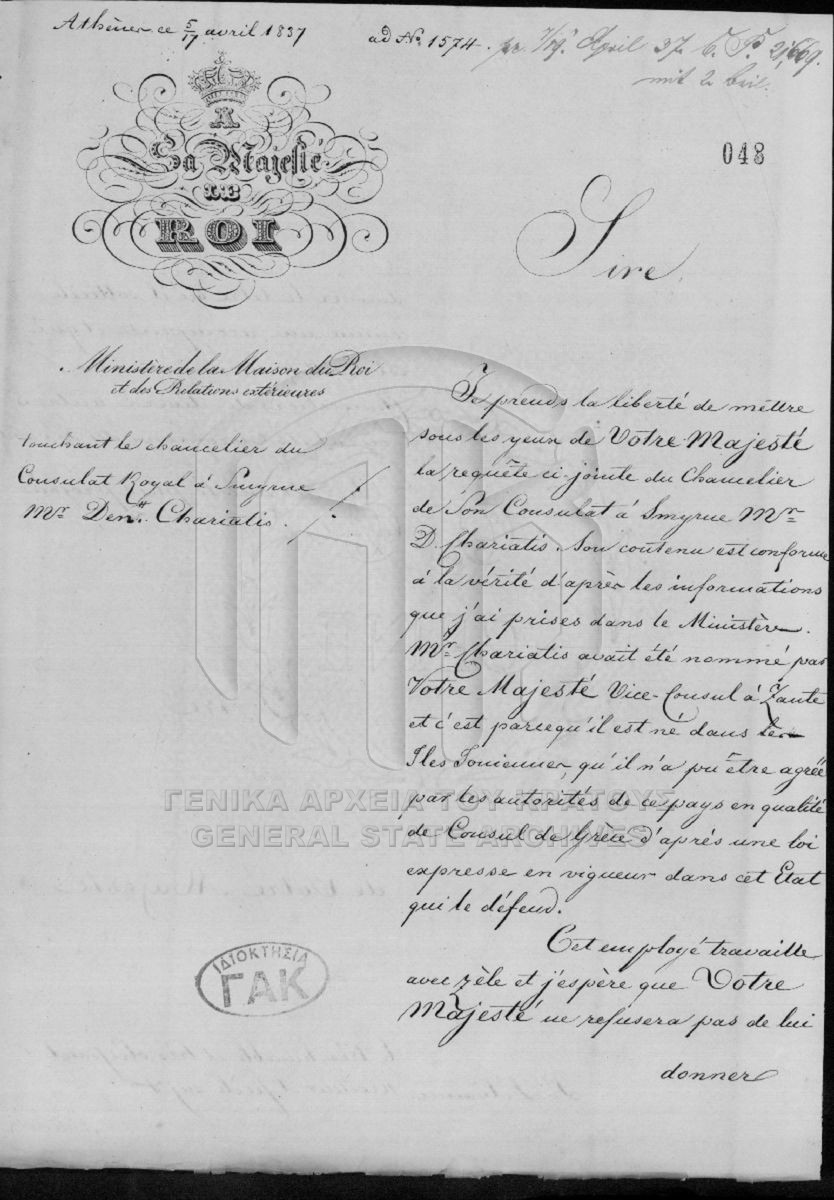 Athènes ce 5/17 avril 1837
ad No. 1574.
pr. April 37. C. P.
mit 2 Beil.
048
A
Sa Majesté
LE
ROI
Sire,
Ministère de la Maison du Roi
et des Relations extérieures
touchant le chancelier du
Consulat Royal à Smyrne
Mr. Den. Chariatis.
Je prends la liberté de mettre
sous les yeux de Votre Majesté
la requête ci jointe du Chancelier
de Son Consulat à Smyrne Mr.
D. Chariatis. Son contenu est conforme
à la vérité d'après les informations
que j'ai prises dans le Ministère.
Mr. Chariatis avait été nommé par
Votre Majesté Vice-Consul à Zante
et c'est parcequ'il est né dans les
Iles Ioniennes, qu'il n'a pu être agréé
par les autorités de ce pays en qualité
de Consul de Grèce d'après une loi
expresse en vigueur dans cet Etat
qui le défend.
Cet employé travaille
avec zèle et j'espère que Votre
Majesté ne refusera pas de lui
donner
ΓΕΝΙΚΑ ΑΡΧΕΙΑ ΤΟΥ ΚΡΑΤΟΥΣ
GENERAL STATE ARCHIVES
ΙΔΙΟΚΤΗΣΙΑ
ΓΑΚ